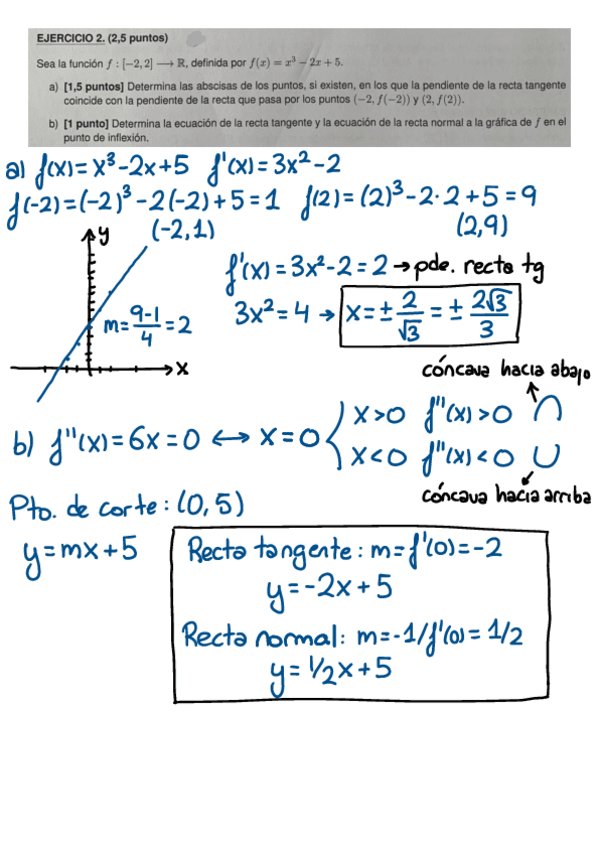 EJERCICIO 2. (2,5 puntos)
Sea la función f : [−2, 2] ⟶ ℝ, definida por f(x) = x³ − 2x + 5.
a) [1,5 puntos] Determina las abscisas de los puntos, si existen, en los que la pendiente de la recta tangente
coincide con la pendiente de la recta que pasa por los puntos (−2, f(−2)) y (2, f(2)).
b) [1 punto] Determina la ecuación de la recta tangente y la ecuación de la recta normal a la gráfica de f en el
punto de inflexión.
a) f(x) = x³ − 2x + 5 f'(x) = 3x² − 2
f(−2) = (−2)³ − 2(−2) + 5 = 1 f(2) = (2)³ − 2·2 + 5 = 9
(−2, 1) (2, 9)
y
f'(x) = 3x² − 2 = 2 → pde. recta tg
m = (9−1)/4 = 2
3x² = 4 → x = ± 2/√3 = ± 2√3/3
x
cóncava hacia abajo
x > 0 f''(x) > 0 ∩
b) f''(x) = 6x = 0 ⟷ x = 0
x < 0 f''(x) < 0 ∪
cóncava hacia arriba
Pto. de corte: (0, 5)
y = mx + 5
Recta tangente: m = f'(0) = −2
y = −2x + 5
Recta normal: m = −1/f'(0) = 1/2
y = 1/2x + 5